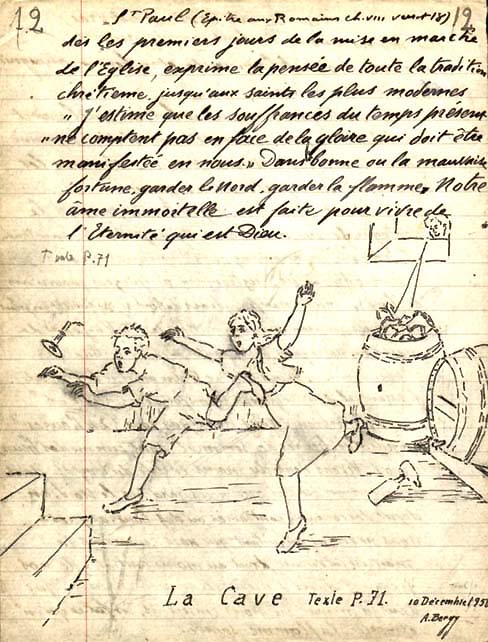 12 St Paul (Epitre aux Romains ch. VIII verset 18) 12
dès les premiers jours de la mise en marche
de l'Eglise, exprime la pensée de toute la tradition
chrétienne, jusqu'aux saints les plus modernes
"J'estime que les souffrances du temps présent
"ne comptent pas en face de la gloire qui doit être
manifestée en nous". Dans bonne ou la mauvaise
fortune, garder le Nord, garder la flamme. Notre
âme immortelle est faite pour vivre de
l'Eternité qui est Dieu.
P. 71
La Cave Texte P. 71.
10 Décembre
A. Bergy